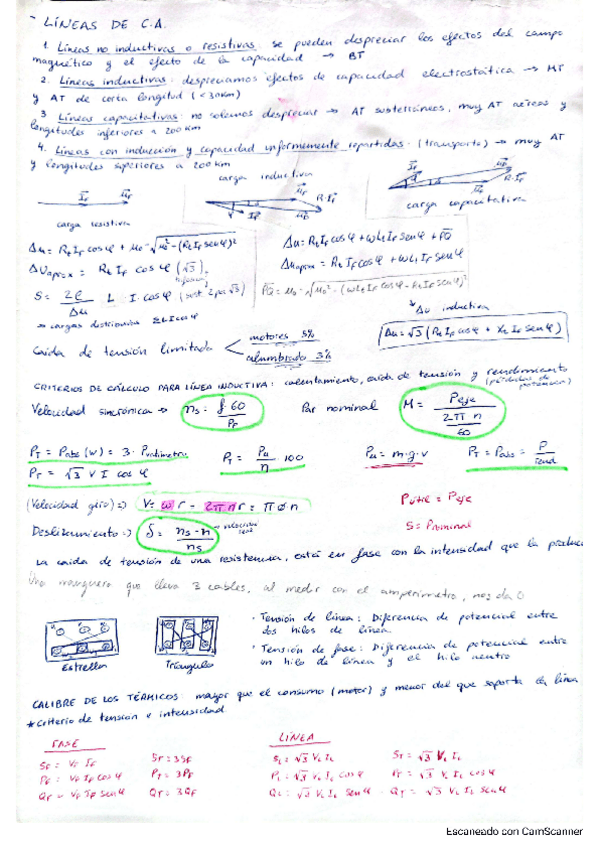 - LÍNEAS DE C.A.
1. Líneas no inductivas o resistivas: se pueden despreciar los efectos del campo
magnético y el efecto de la capacidad → BT
2. Líneas inductivas: despreciamos efectos de capacidad electrostática → MT
y AT de corta longitud (<30km)
3 Líneas capacitativas: no solemos despreciar → AT subterráneos, muy AT aéreas y
longitudes inferiores a 200km
4. Líneas con inducción y capacidad uniformemente repartidas: (transporte) → muy AT
y longitudes superiores a 200km
carga inductiva
carga resistiva
carga capacitativa
Δu = RL IF cos φ + μ0 - √(μ0² - (RL IF sen φ)²)
ΔUaprox = RL IF cos φ (√3)
S = 2ρ/Δu L I cos φ
→ cargas distribuidas ΣLI cos φ
Δu = RL IF cos φ + ωL IF sen φ + PQ
Δuaprox = RL IF cos φ + ωL IF sen φ
Δu inductiva
Δu = √3 (RL IF cos φ + XL IF sen φ)
Caída de tensión limitada
motores 5%
alumbrado 3%
CRITERIOS DE CÁLCULO PARA LÍNEA INDUCTIVA: calentamiento, caída de tensión y rendimiento
(pérdidas de potencia)
Velocidad sincrónica → ns = f 60 / Pp
Par nominal M = Peje / (2π n / 60)
PT = Pabs (w) = 3 · Pvatímetro
PT = Pu/n 100
Pu = m·g·v
PT = Pabs = P/rend
PT = √3 V I cos φ
(Velocidad giro) => V = ω r = 2π n r = π ∅ n
Pútil = Peje
S = Pnominal
Deslizamiento => δ = (ns - n) / ns → velocidad real
La caída de tensión de una resistencia, está en fase con la intensidad que la produce
Una manguera que lleva 3 cables, al medir con el amperímetro, nos da 0
Estrella
Triángulo
· Tensión de línea: Diferencia de potencial entre
dos hilos de línea
· Tensión de fase: Diferencia de potencial entre
un hilo de línea y el hilo neutro
CALIBRE DE LOS TÉRMICOS: mayor que el consumo (motor) y menor del que soporta la línea
* criterio de tensión e intensidad
FASE
LÍNEA
SF = VF IF
ST = 3SF
SL = √3 VL IL
ST = √3 VL IL
PF = VF IF cos φ
PT = 3PF
PL = √3 VL IL cos φ
PT = √3 VL IL cos φ
QF = VF IF sen φ
QT = 3QF
QL = √3 VL IL sen φ
QT = √3 VL IL sen φ
Escaneado con CamScanner